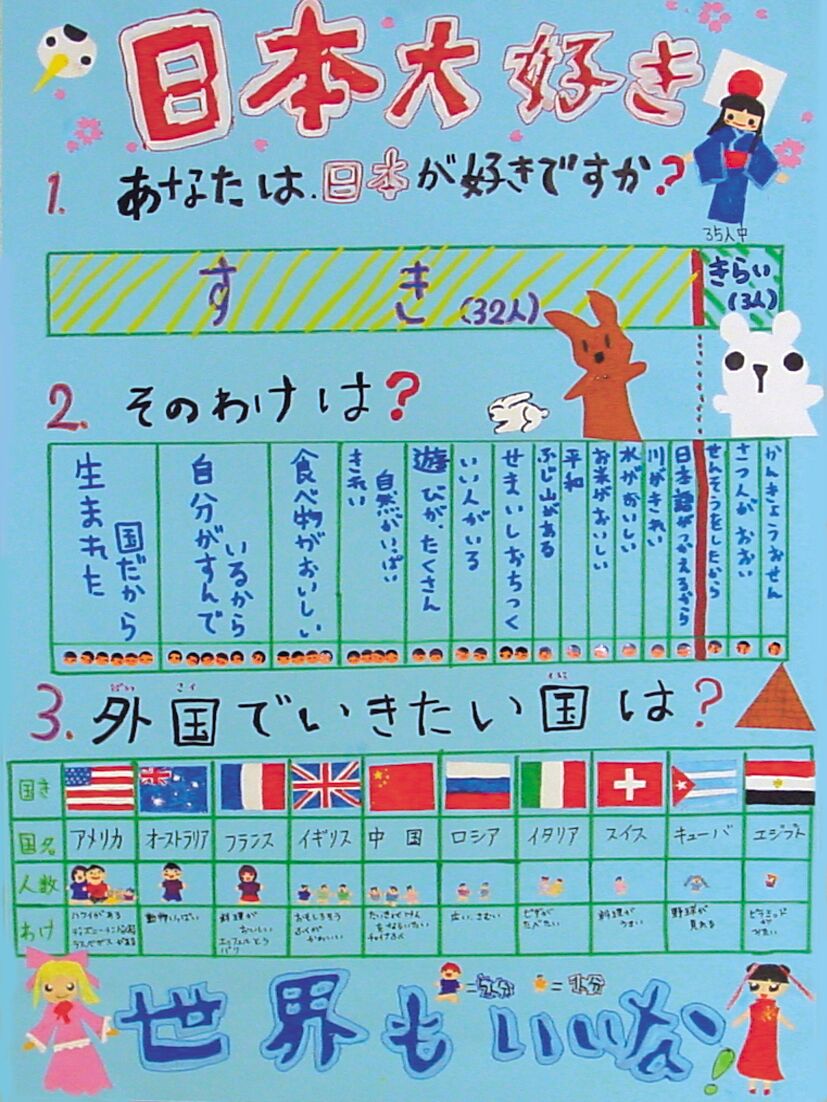 日本大好き
1. あなたは、日本が好きですか?
35人中
すき(32人)
きらい(3人)
2. そのわけは?
生まれた国だから
自分がすんでいるから
食べ物がおいしい
自然がいっぱいきれい
遊びが、たくさん
いい人がいる
せまいしおちつく
ふじ山がある
平和
お米がおいしい
水がおいしい
川がきれい
日本語がつかえるから
せんそうをしたから
さつ人がおおい
かんきょうおせん
3. 外国でいきたい国は?
国き
国名 アメリカ オーストラリア フランス イギリス 中国 ロシア イタリア スイス キューバ エジプト
人数
わけ
ハワイがある
動物いっぱい
料理がおいしい
エッフェルとう
パリ
おもしろそう
ふくがかわいい
広い、さむい
ピザがたべたい
料理がうまい
野球が見れる
世界もいいなぁ!